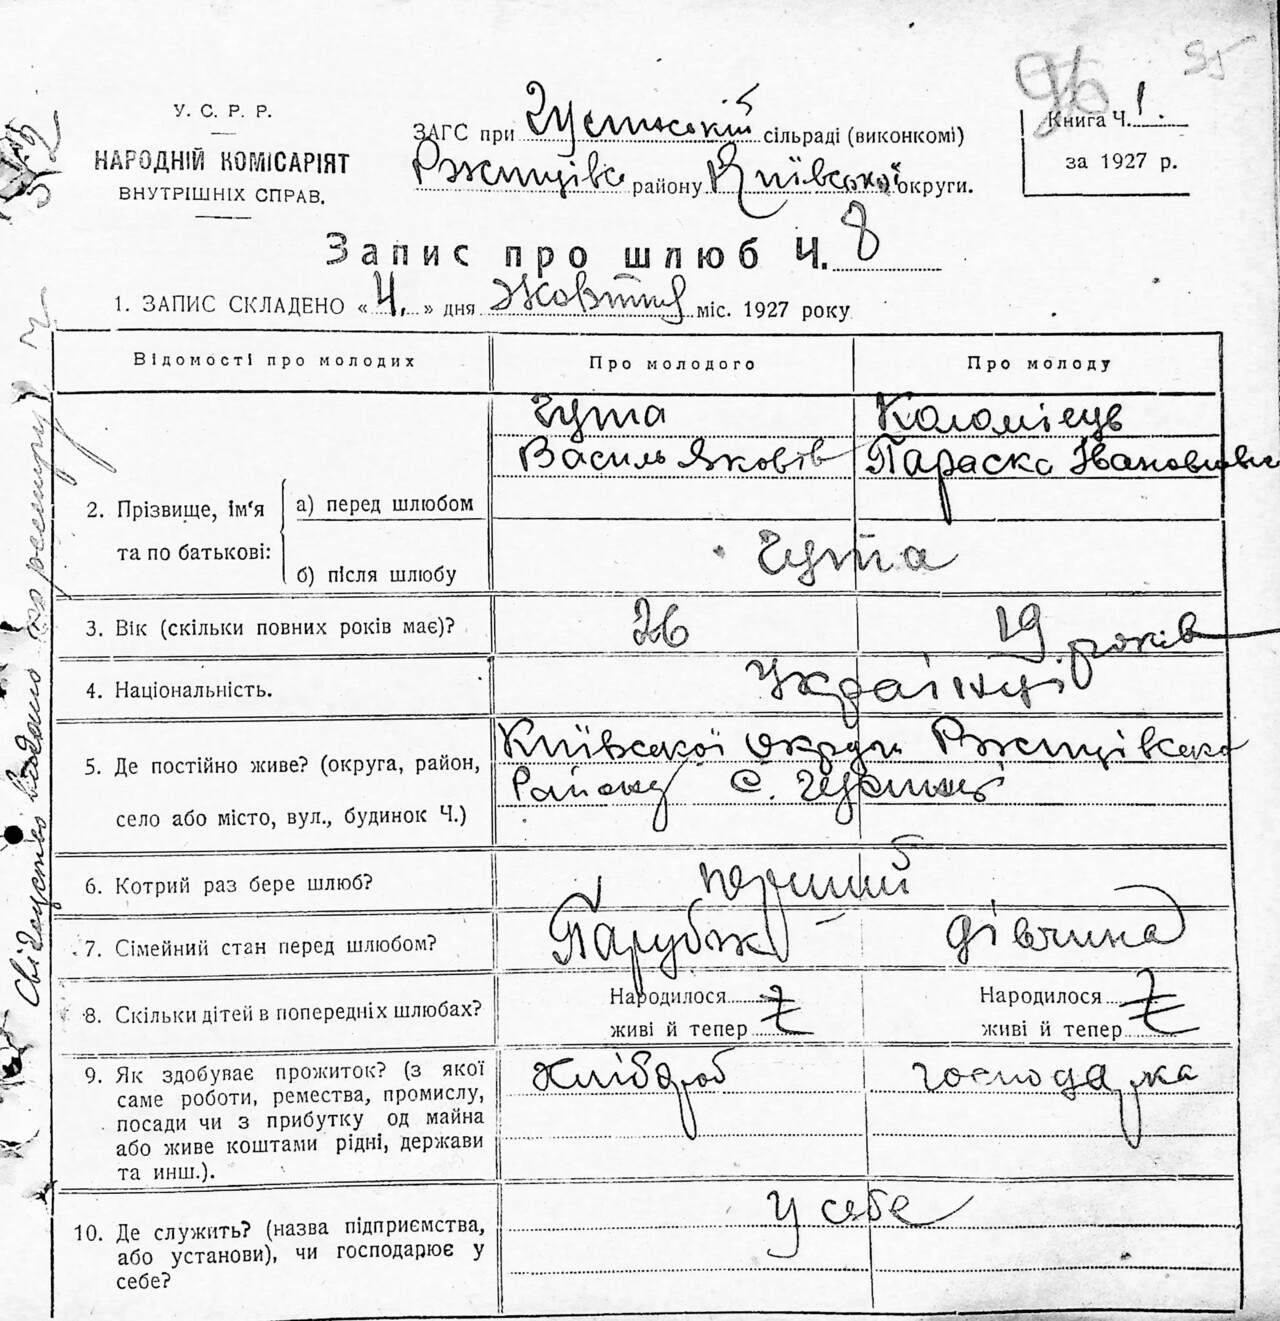 96 95
У. С. Р. Р.
НАРОДНІЙ КОМІСАРІЯТ
ВНУТРІШНІХ СПРАВ.
ЗАГС при сільраді (виконкомі)
Ржищівс району Київської округи.
Книга Ч. 1
за 1927 р.
Запис про шлюб Ч. 8
1. ЗАПИС СКЛАДЕНО «4.» дня Жовтня міс. 1927 року
Відомості про молодих Про молодого Про молоду
Гута Коломієць
Василь Яковів Параска Івановна
2. Прізвище, ім'я а) перед шлюбом
та по батькові: б) після шлюбу Гута
3. Вік (скільки повних років має)? 26 19 років
4. Національність. Українці
Київської округи Ржищівсько
5. Де постійно живе? (округа, район, Району С.
село або місто, вул., будинок Ч.)
6. Котрий раз бере шлюб? перший
7. Сімейний стан перед шлюбом? Парубок дівчина
8. Скільки дітей в попередніх шлюбах? Народилося Народилося
живі й тепер живі й тепер
9. Як здобуває прожиток? (з якої Хлібороб господарка
саме роботи, ремества, промислу,
посади чи з прибутку од майна
або живе коштами рідні, держави
та инш.).
У себе
10. Де служить? (назва підприємства,
або установи), чи господарює у
себе?
Свідоцтво видано по реєстру ч.